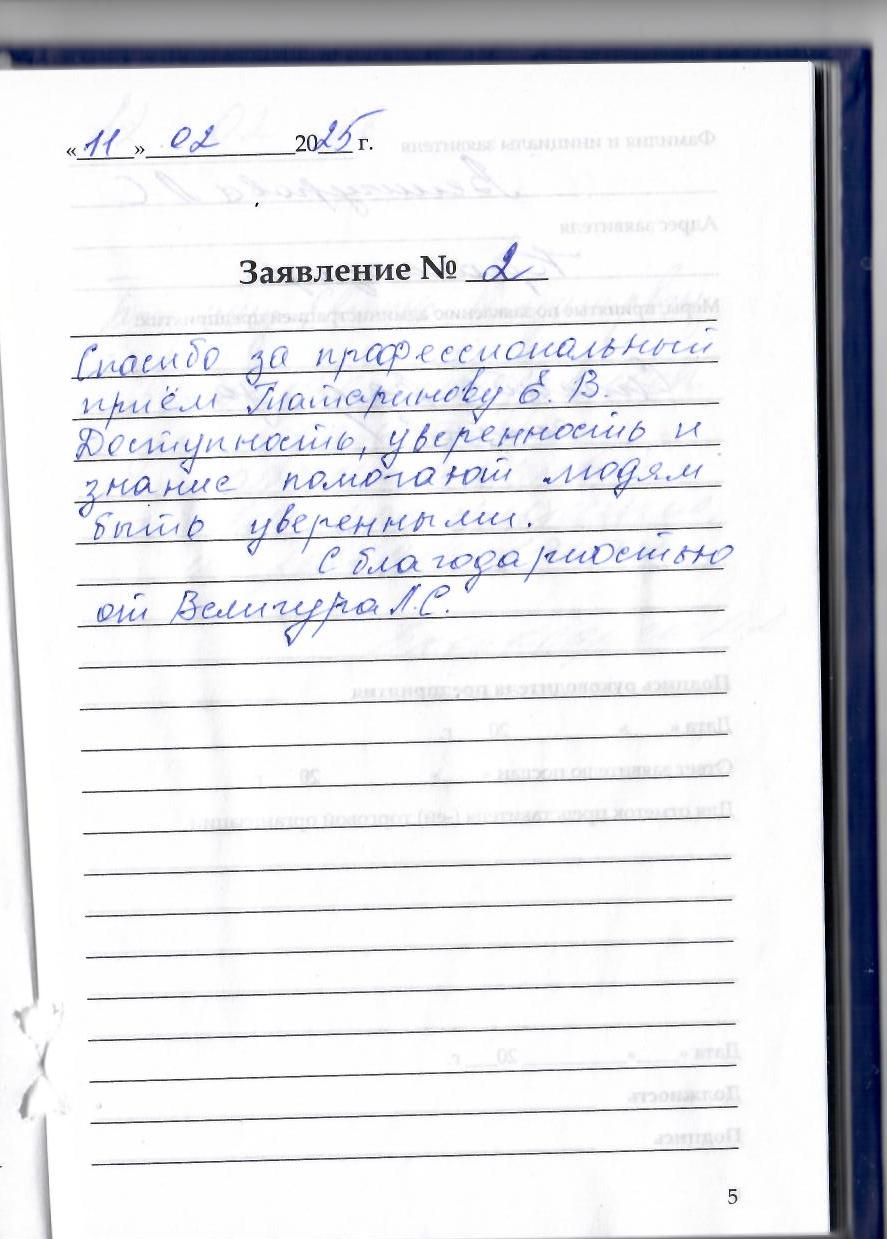 «11» 02 2025 г.
Заявление № 2
Спасибо за профессиональный
приём Татаринову Е. В.
Доступность, уверенность и
знание помогают людям
быть уверенными.
С благодарностью
от Велигура Л.С.
5